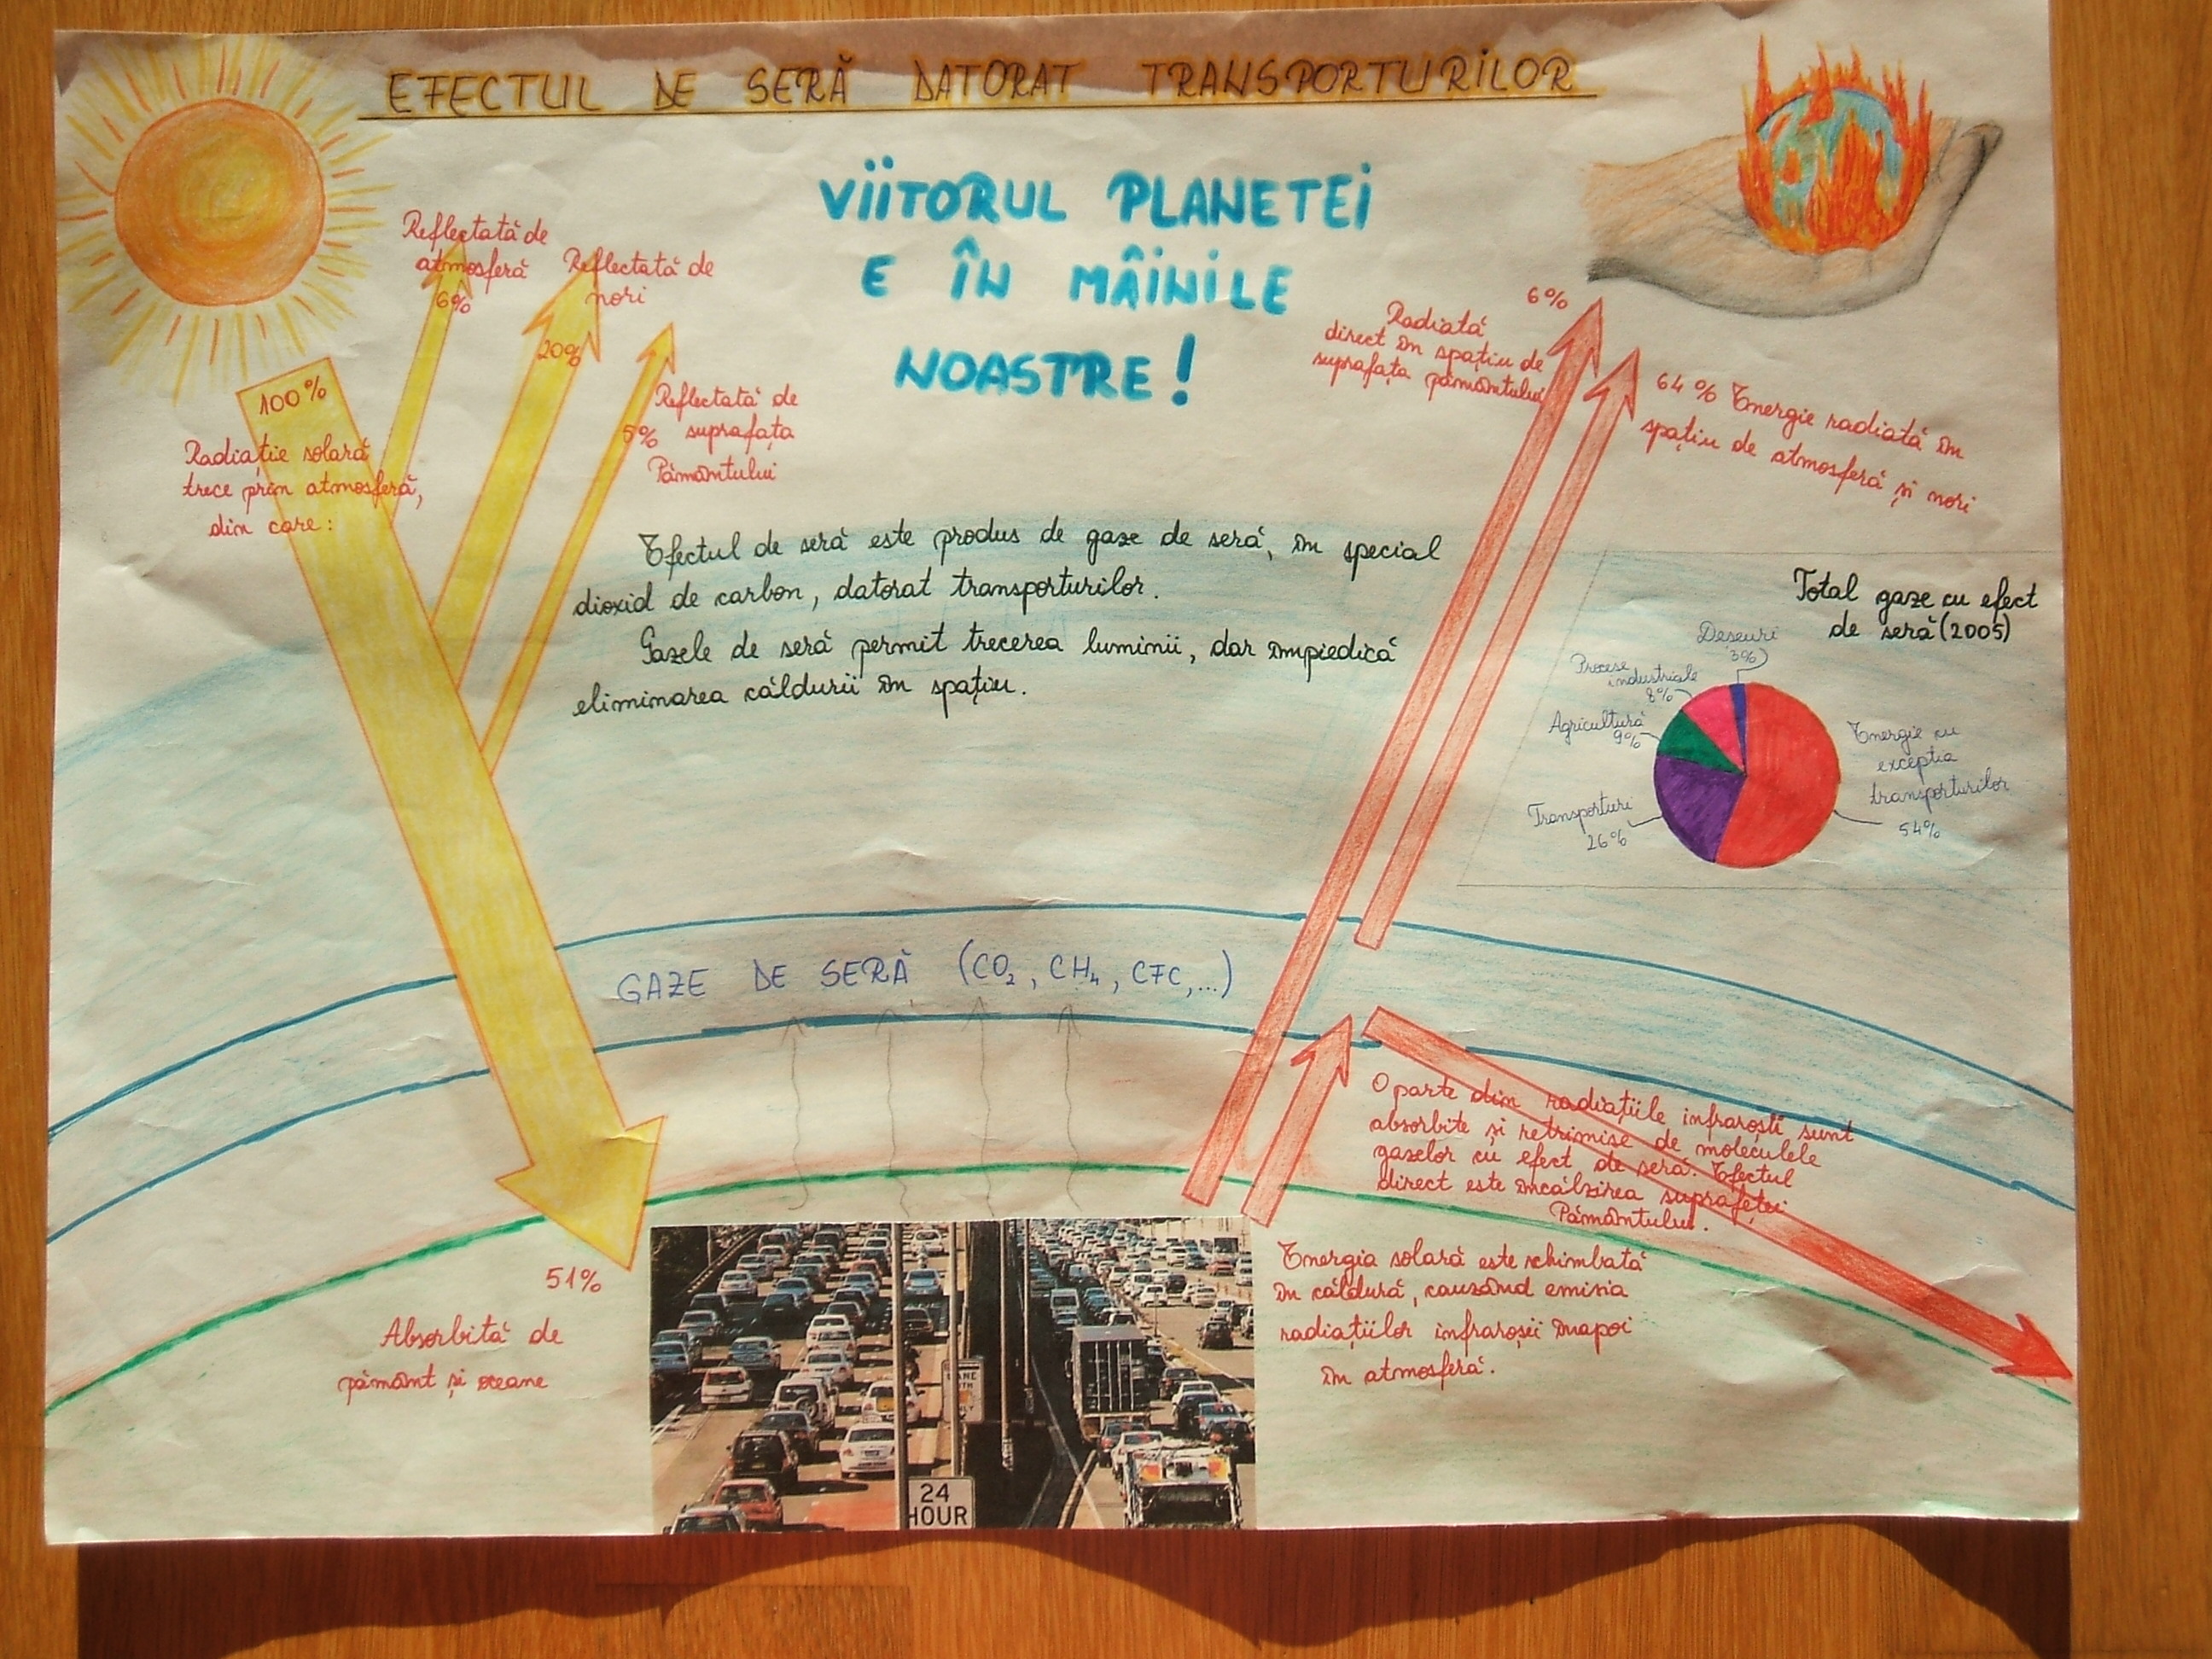 EFECTUL DE SERĂ DATORAT TRANSPORTURILOR
VIITORUL PLANETEI
E ÎN MÂINILE
NOASTRE!
100%
Radiație solară
trece prin atmosferă,
din care:
Reflectată de
atmosferă
6%
Reflectată de
nori
20%
Reflectată de
5% suprafața
Pământului
Efectul de seră este produs de gaze de seră, în special
dioxid de carbon, datorat transporturilor.
Gazele de seră permit trecerea luminii, dar împiedică
eliminarea căldurii în spațiu.
6%
Radiată
direct în spațiu de
suprafața pământului
64% Energie radiată în
spațiu de atmosferă și nori
Total gaze cu efect
de seră (2005)
Deșeuri
3%
Procese
industriale
8%
Agricultură
9%
Transporturi
26%
Energie cu
excepția
transporturilor
54%
GAZE DE SERĂ (CO₂, CH₄, CFC,...)
O parte din radiațiile infraroșii sunt
absorbite și retrimise de moleculele
gazelor cu efect de seră. Efectul
direct este încălzirea suprafeței
Pământului.
51%
Absorbită de
pământ și oceane
Energia solară este schimbată
în căldură, cauzând emisia
radiațiilor infraroșii înapoi
în atmosferă.
24
HOUR